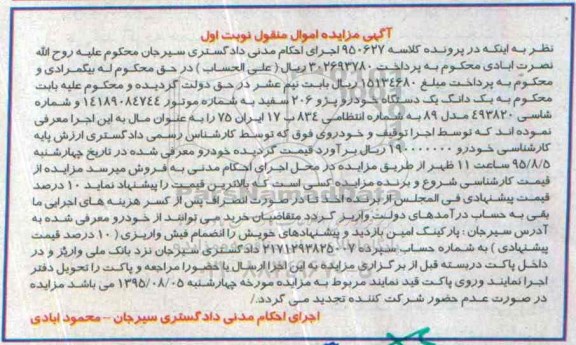 آگهی مزایده اموال منقول نوبت اول
نظر به اینکه در پرونده کلاسه ۹۵۰۶۲۷ اجرای احکام مدنی دادگستری سیرجان محکوم علیه روح الله
نصرت ابادی محکوم به پرداخت ۳۰۲۶۹۳۷۸۰ ریال ( علی الحساب ) در حق محکوم له بیگمرادی و
محکوم به پرداخت مبلغ ۱۵۱۳۴۶۸۰ ریال بابت نیم عشر در حق دولت گردیده و محکوم علیه بابت
محکوم به یک دانگ یک دستگاه خودرو پژو ۲۰۶ سفید به شماره موتور ۱۴۱۸۹۰۸۴۷۴۴ و شماره
شاسی ۴۹۳۸۲۰ مدل ۸۹ به شماره انتظامی ۸۳۴ ب ۱۷ ایران ۷۵ را به عنوان مال به این اجرا معرفی
نموده اند که توسط اجرا توقیف و خودروی فوق که توسط کارشناس رسمی دادگستری ارزش پایه
کارشناسی خودرو ۱۹۰۰۰۰۰۰۰ ریال برآورد قیمت گردیده خودرو معرفی شده در تاریخ چهارشنبه
۹۵/۸/۵ ساعت ۱۱ ظهر از طریق مزایده در محل اجرای احکام مدنی به فروش میرسد مزایده از
قیمت کارشناسی شروع و برنده مزایده کسی است که بالاترین قیمت را پیشنهاد نماید ۱۰ درصد
قیمت پیشنهادی فی المجلس از برنده اخذ و در صورت انصراف پس از کسر هزینه های اجرایی ما
بقی به حساب درآمدهای دولت واریز گردد متقاضیان خرید می توانند از خودرو معرفی شده به
آدرس سیرجان : پارکینگ امین بازدید و پیشنهادهای خویش را انضمام فیش واریزی ( ۱۰ درصد قیمت
پیشنهادی ) به شماره حساب سپرده ۲۱۷۱۲۹۳۸۲۵۰۰۷ دادگستری سیرجان نزد بانک ملی واریز و در
داخل پاکت دربسته قبل از برگزاری مزایده به این اجرا ارسال یا حضورا مراجعه و پاکت را تحویل دفتر
اجرا نمایند وروی پاکت قید نمایند مربوط به مزایده مورخه چهارشنبه ۱۳۹۵/۰۸/۰۵ می باشد مزایده
در صورت عدم حضور شرکت کننده تجدید می گردد./
اجرای احکام مدنی دادگستری سیرجان – محمود ابادی